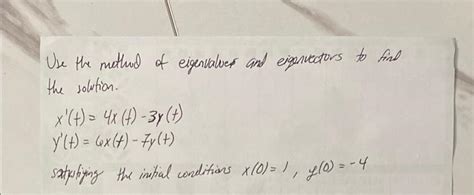 Use the method of eigenvalues and eigenvectors to find
the solution.
x'(t) = 4x(t) - 3y(t)
y'(t) = 6x(t) - 7y(t)
satisfying the initial conditions x(0) = 1, y(0) = -4